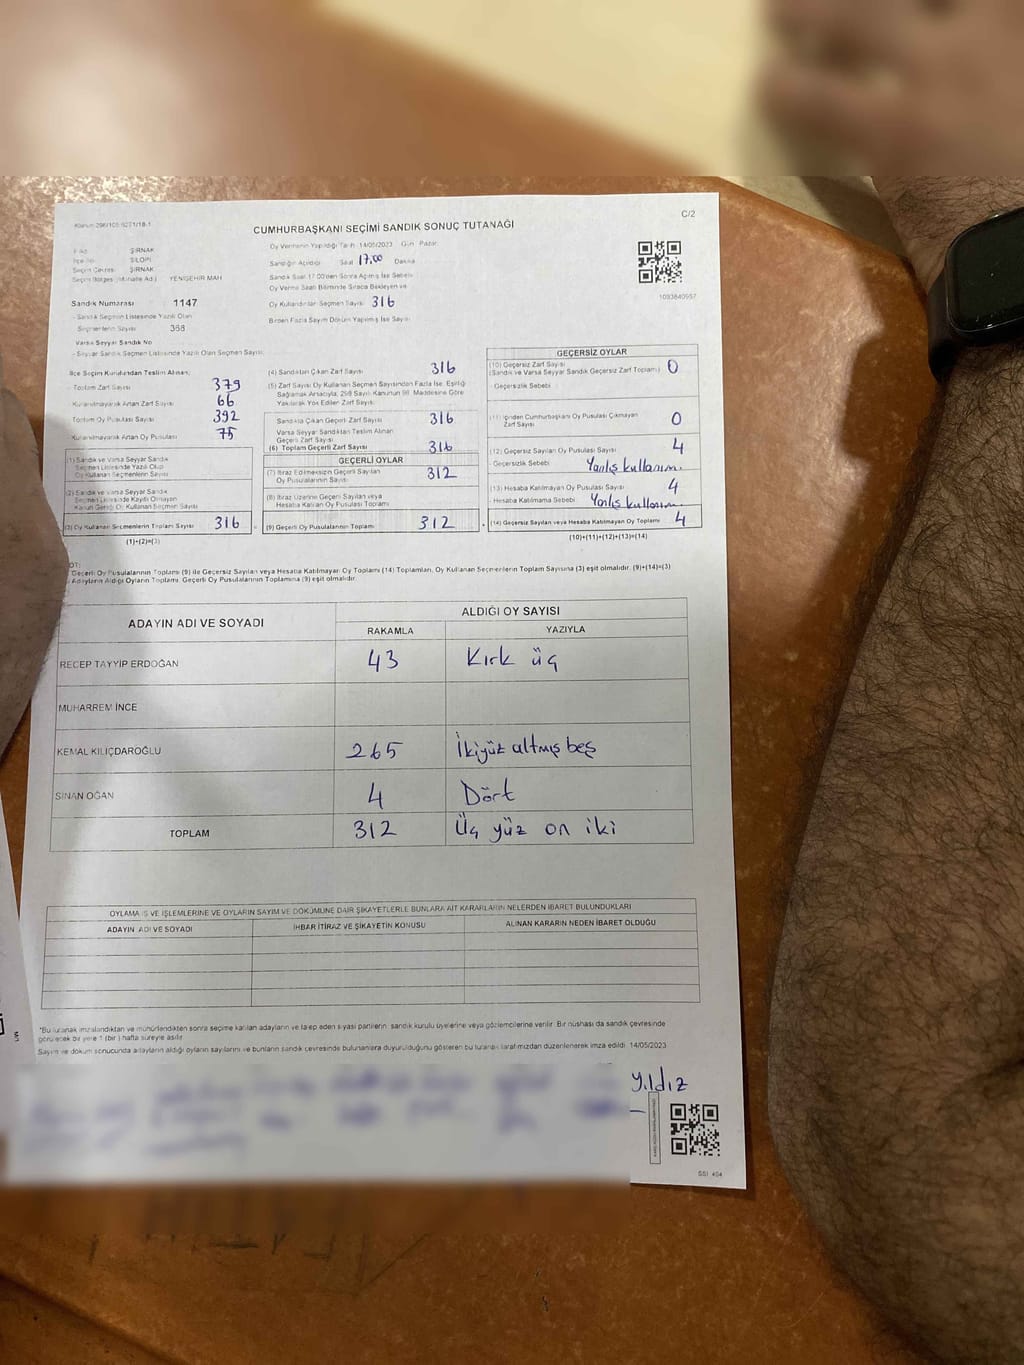 C/2
CUMHURBAŞKANI SEÇİMİ SANDIK SONUÇ TUTANAĞI
Oy Vermenin Yapıldığı Tarih 14/05/2023 Gün Pazar
ŞIRNAK
SİLOPİ
Seçim Çevresi ŞIRNAK
YENİŞEHİR MAH
Sandığın Açıldığı Saat 17.00 Dakika
Sandık Saat 17:00'den Sonra Açılmış İse Sebebi
Oy Verme Saati Bitiminde Sırada Bekleyen ve
Oy Kullandırılan Seçmen Sayısı 316
Birden Fazla Sayım Döküm Yapılmış İse Sayısı
1093840957
Sandık Numarası 1147
- Sandık Seçmen Listesinde Yazılı Olan
Seçmenlerin Sayısı 368
Varsa Seyyar Sandık No
- Seyyar Sandık Seçmen Listesinde Yazılı Olan Seçmen Sayısı
İlçe Seçim Kurulundan Teslim Alınan;
- Toplam Zarf Sayısı 379
Kullanılmayarak Artan Zarf Sayısı 66
Toplam Oy Pusulası Sayısı 392
Kullanılmayarak Artan Oy Pusulası 75
(1) Sandık ve Varsa Seyyar Sandık
Seçmen Listesinde Yazılı Olup
Oy Kullanan Seçmenlerin Sayısı
(2) Sandık ve Varsa Seyyar Sandık
Seçmen Listesinde Kayıtlı Olmayan
Kanun Gereği Oy Kullanan Seçmen Sayısı
(3) Oy Kullanan Seçmenlerin Toplam Sayısı 316
(1)+(2)=(3)
(4) Sandıktan Çıkan Zarf Sayısı 316
(5) Zarf Sayısı Oy Kullanan Seçmen Sayısından Fazla İse, Eşitliği
Sağlamak Amacıyla, 298 Sayılı Kanunun 98. Maddesine Göre
Yakılarak Yok Edilen Zarf Sayısı
Sandıkta Çıkan Geçerli Zarf Sayısı 316
Varsa Seyyar Sandıktan Teslim Alınan
Geçerli Zarf Sayısı
(6) Toplam Geçerli Zarf Sayısı 316
GEÇERLİ OYLAR
(7) İtiraz Edilmeksizin Geçerli Sayılan
Oy Pusulalarının Sayısı 312
(8) İtiraz Üzerine Geçerli Sayılan veya
Hesaba Katılan Oy Pusulası Toplamı
(9) Geçerli Oy Pusulalarının Toplamı 312
GEÇERSİZ OYLAR
(10) Geçersiz Zarf Sayısı
(Sandık ve Varsa Seyyar Sandık Geçersiz Zarf Toplamı) 0
- Geçersizlik Sebebi
(11) İçinden Cumhurbaşkanı Oy Pusulası Çıkmayan
Zarf Sayısı 0
(12) Geçersiz Sayılan Oy Pusulası Sayısı 4
- Geçersizlik Sebebi Yanlış kullanım.
(13) Hesaba Katılmayan Oy Pusulası Sayısı 4
- Hesaba Katılmama Sebebi Yanlış kullanım
(14) Geçersiz Sayılan veya Hesaba Katılmayan Oy Toplamı 4
(10)+(11)+(12)+(13)=(14)
Geçerli Oy Pusulalarının Toplamı (9) ile Geçersiz Sayılan veya Hesaba Katılmayan Oy Toplamı (14) Toplamları, Oy Kullanan Seçmenlerin Toplam Sayısına (3) eşit olmalıdır. (9)+(14)=(3)
Adayların Aldığı Oyların Toplamı, Geçerli Oy Pusulalarının Toplamına (9) eşit olmalıdır.
ADAYIN ADI VE SOYADI
ALDIĞI OY SAYISI
RAKAMLA YAZIYLA
RECEP TAYYİP ERDOĞAN 43 Kırk üç
MUHARREM İNCE
KEMAL KILIÇDAROĞLU 265 İkiyüz altmış beş
SİNAN OĞAN 4 Dört
TOPLAM 312 Üç yüz on iki
OYLAMA İŞ VE İŞLEMLERİNE VE OYLARIN SAYIM VE DÖKÜMÜNE DAİR ŞİKAYETLERLE BUNLARA AİT KARARLARIN NELERDEN İBARET BULUNDUKLARI
ADAYIN ADI VE SOYADI İHBAR İTİRAZ VE ŞİKAYETİN KONUSU ALINAN KARARIN NEDEN İBARET OLDUĞU
*Bu tutanak imzalandıktan ve mühürlendikten sonra seçime katılan adayların ve talep eden siyasi partilerin sandık kurulu üyelerine veya gözlemcilerine verilir. Bir nüshası da sandık çevresinde
görülecek bir yere 1 (bir) hafta süreyle asılır
Sayım ve döküm sonucunda adayların aldığı oyların sayılarını ve bunların sandık çevresinde bulunanlara duyurulduğunu gösteren bu tutanak tarafımızdan düzenlenerek imza edildi. 14/05/2023
Yıldız